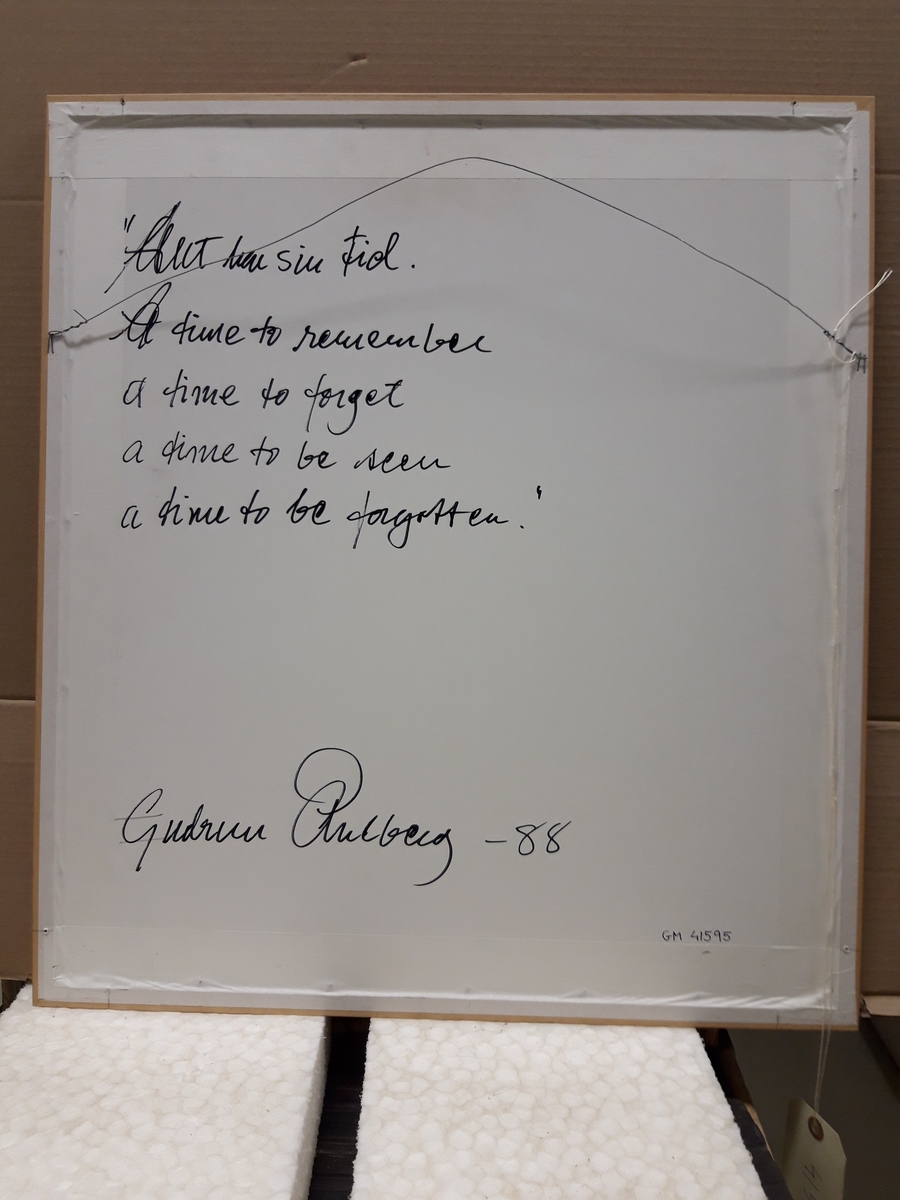 "Allt har sin tid.
A time to remember
a time to forget
a time to be seen
a time to be forgotten."
Gudrun Åhlberg -88
GM 41595